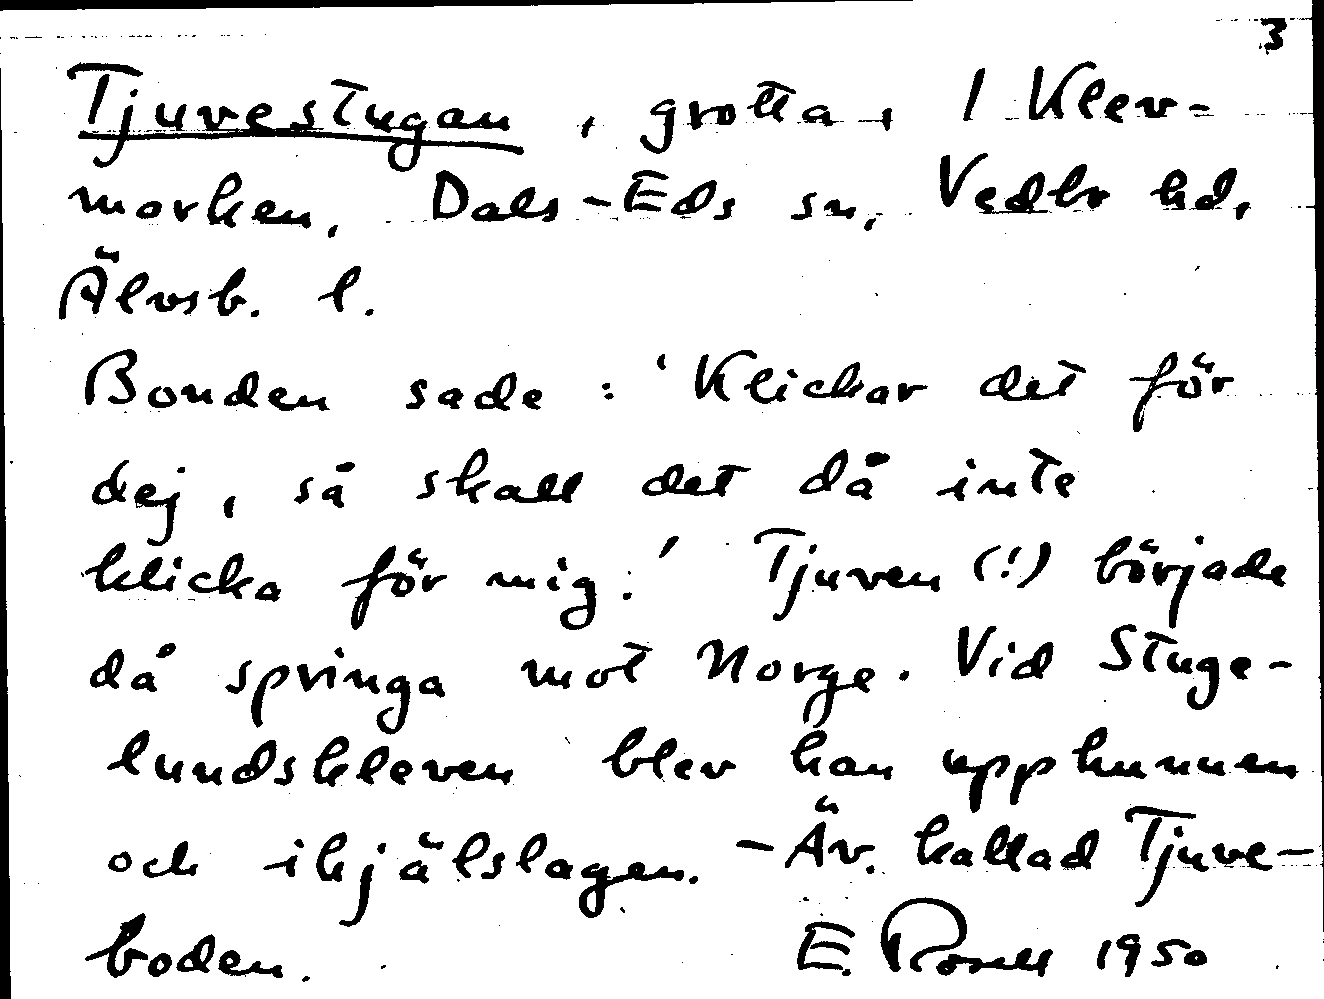 3
Tjuvestugan, grotta, I Klev-
marken, Dals-Eds sn, Vedbo hd,
Älvsb. l.
Bonden sade: 'Klickar det för
dej, så skall det då inte
klicka för mig!' Tjuven (!) började
då springa mot Norge. Vid Stuge-
lundskleven blev han upphunnen
och ihjälslagen. - Äv. kallad Tjuve-
boden. E. Rosell 1950